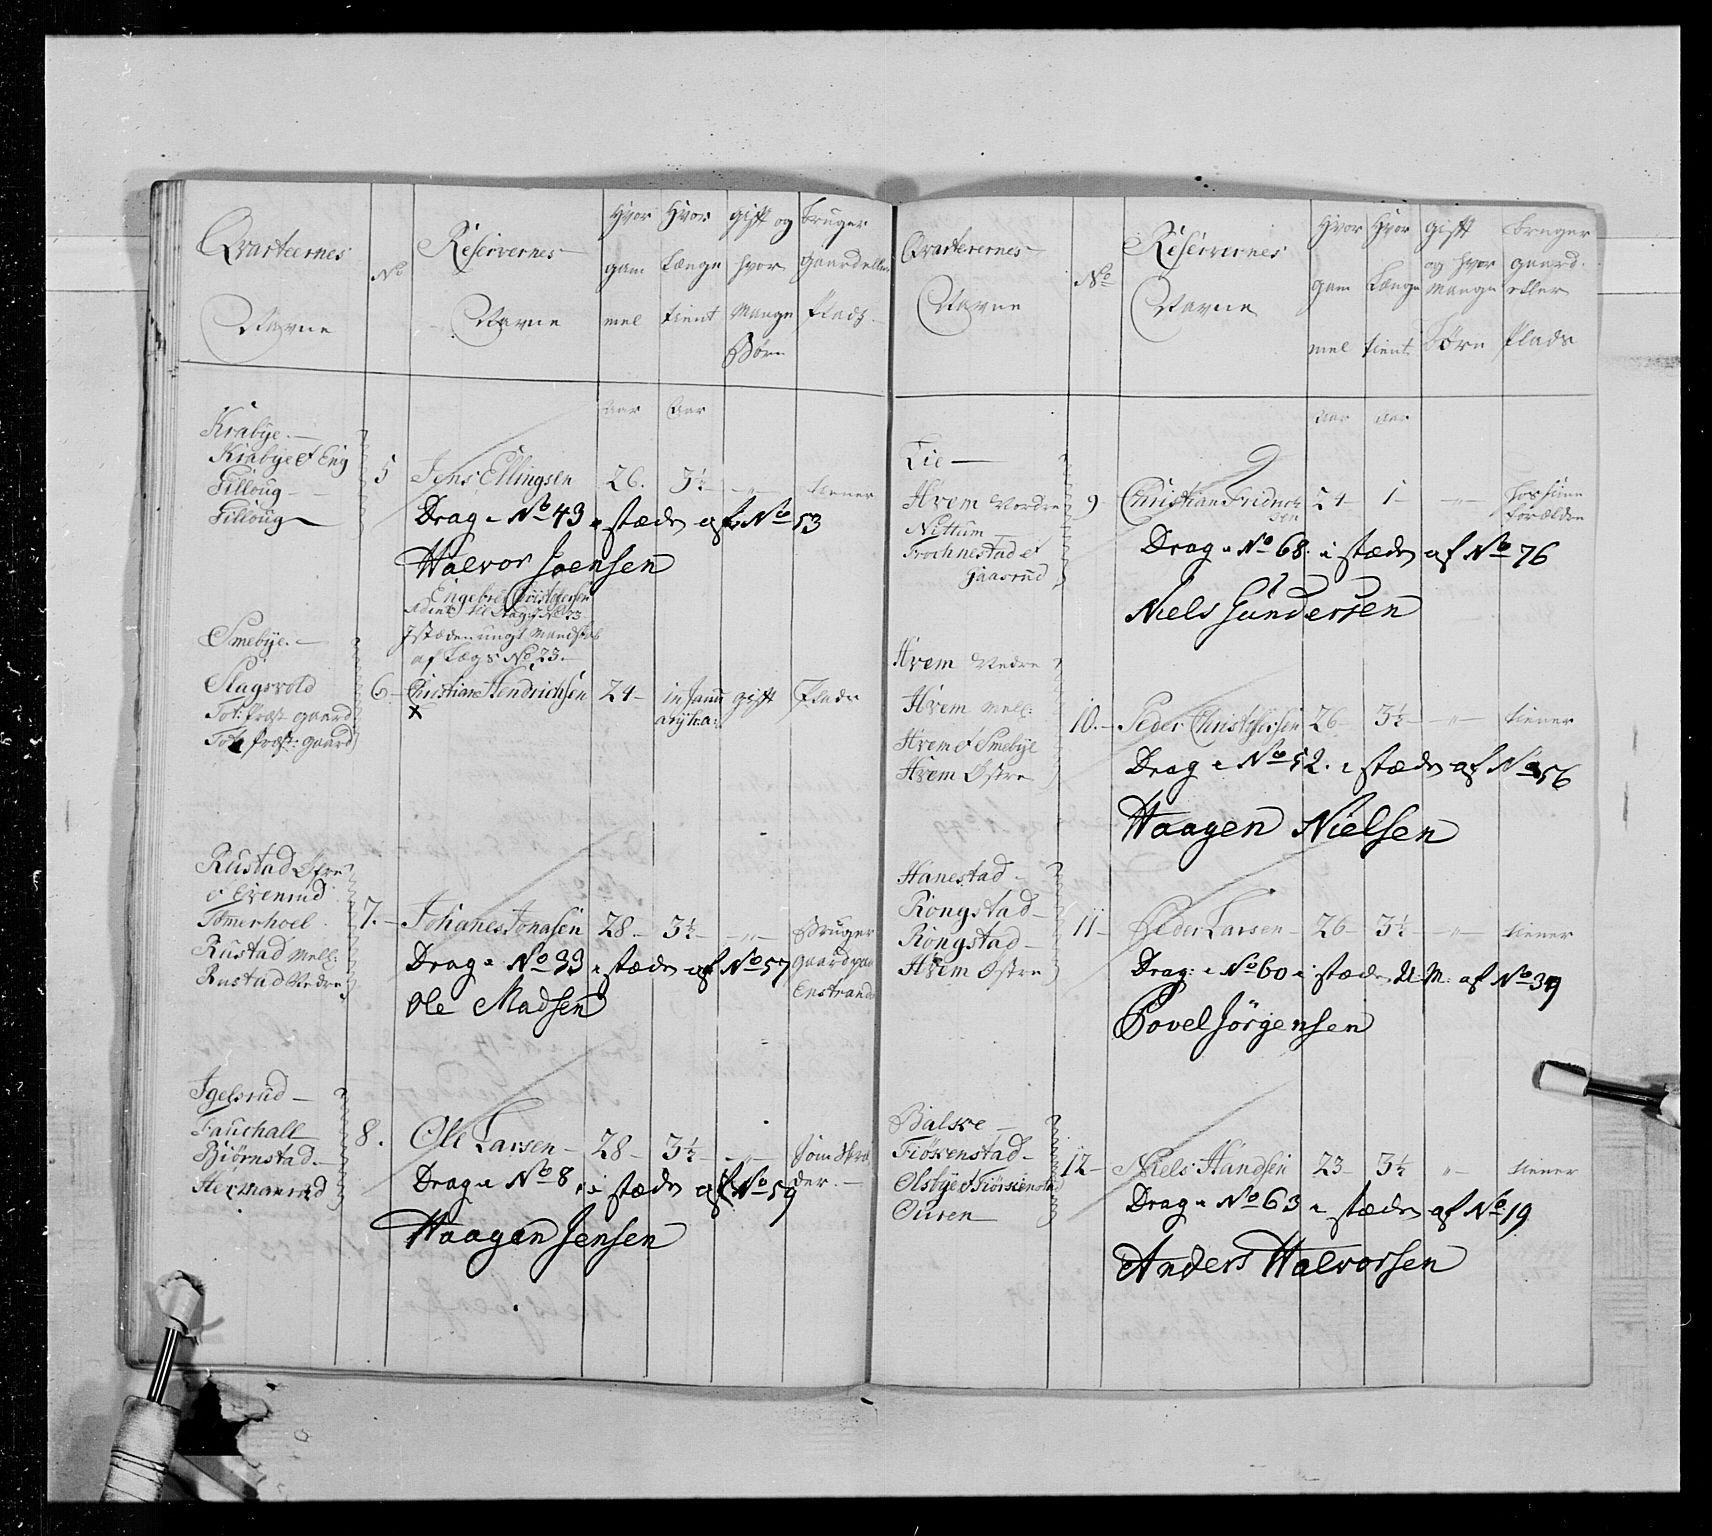 Qvarteernes
Navne
No
Reservernes
Navne
Hvor
gam
mel
Hvor
længe
tient
gift og
hvor
mange
Børn
bruger
gaard eller
Plads
aar
aar
Krabye
Krabye et Eng
Tilloug
Tilloug
5
Jens Ellingsen
26.
3½
-"-
tiener
Drag: No 43 i stæden af No 53
Halvor Joensen
Engebret Christophersen
i stæden ungt Mandskab
af Lægs No 23.
Smebye.
Slagsvold
Tot: Præst gaard
Tot: Præst: gaard
6
Christian Hendrichsen
24
gift
Plads
x
Rustad Øfre
et Evenrud
Tømerhoel
Rustad Mell:
Rustad Nedre
7.
Johanes Jonasen
28
3½
-"-
Bruger
gaard paa
Enstrand
Drag: No 33 i stæden af No 57
Ole Madsen
Igelsrud
Fauchall
Biørnstad
Hermanrud
8.
Ole Larsen
28
3½
-"-
som Skræ
der.
Drag: No 8, i stæden af No 59
Haagen Jensen
Qvarterernes
Navne
No
Reservernes
Navne
Hvor
gam
mel
Hvor
længe
tient
gift
og hvor
mange
børn
bruger
gaard
eller
Plads
aar
aar
Lie
Hvem Nordre
Nittum
Frochnestad et
Gaasrud
9
Christian Fridrich
sen
24
1
-"-
hos sine
forældre
Drag: No 68. i stæden af No 76
Niels Gundersen
Hvem Nedre
Hvem Mell:
Hvem et Smebye
Hvem Østre
10.
Peder Christophersen
26
3½
-"-
tiener
Drag: No 52. i stæden af No 56
Haagen Nielsen
Hanestad
Rongstad
Rongstad
Hvem Østre
11
Peder Larsen
26
3½
-"-
tiener
Drag: No 60 i stæden U: M. af No 39
Povel Jörgensen
Balske
Fiöskenstad
Olsbye et Fiörskenstad
Ouren
12
Niels Handsen
23
3½
"
tiener
Drag: No 63 i stæden af No 19
Anders Halvorsen